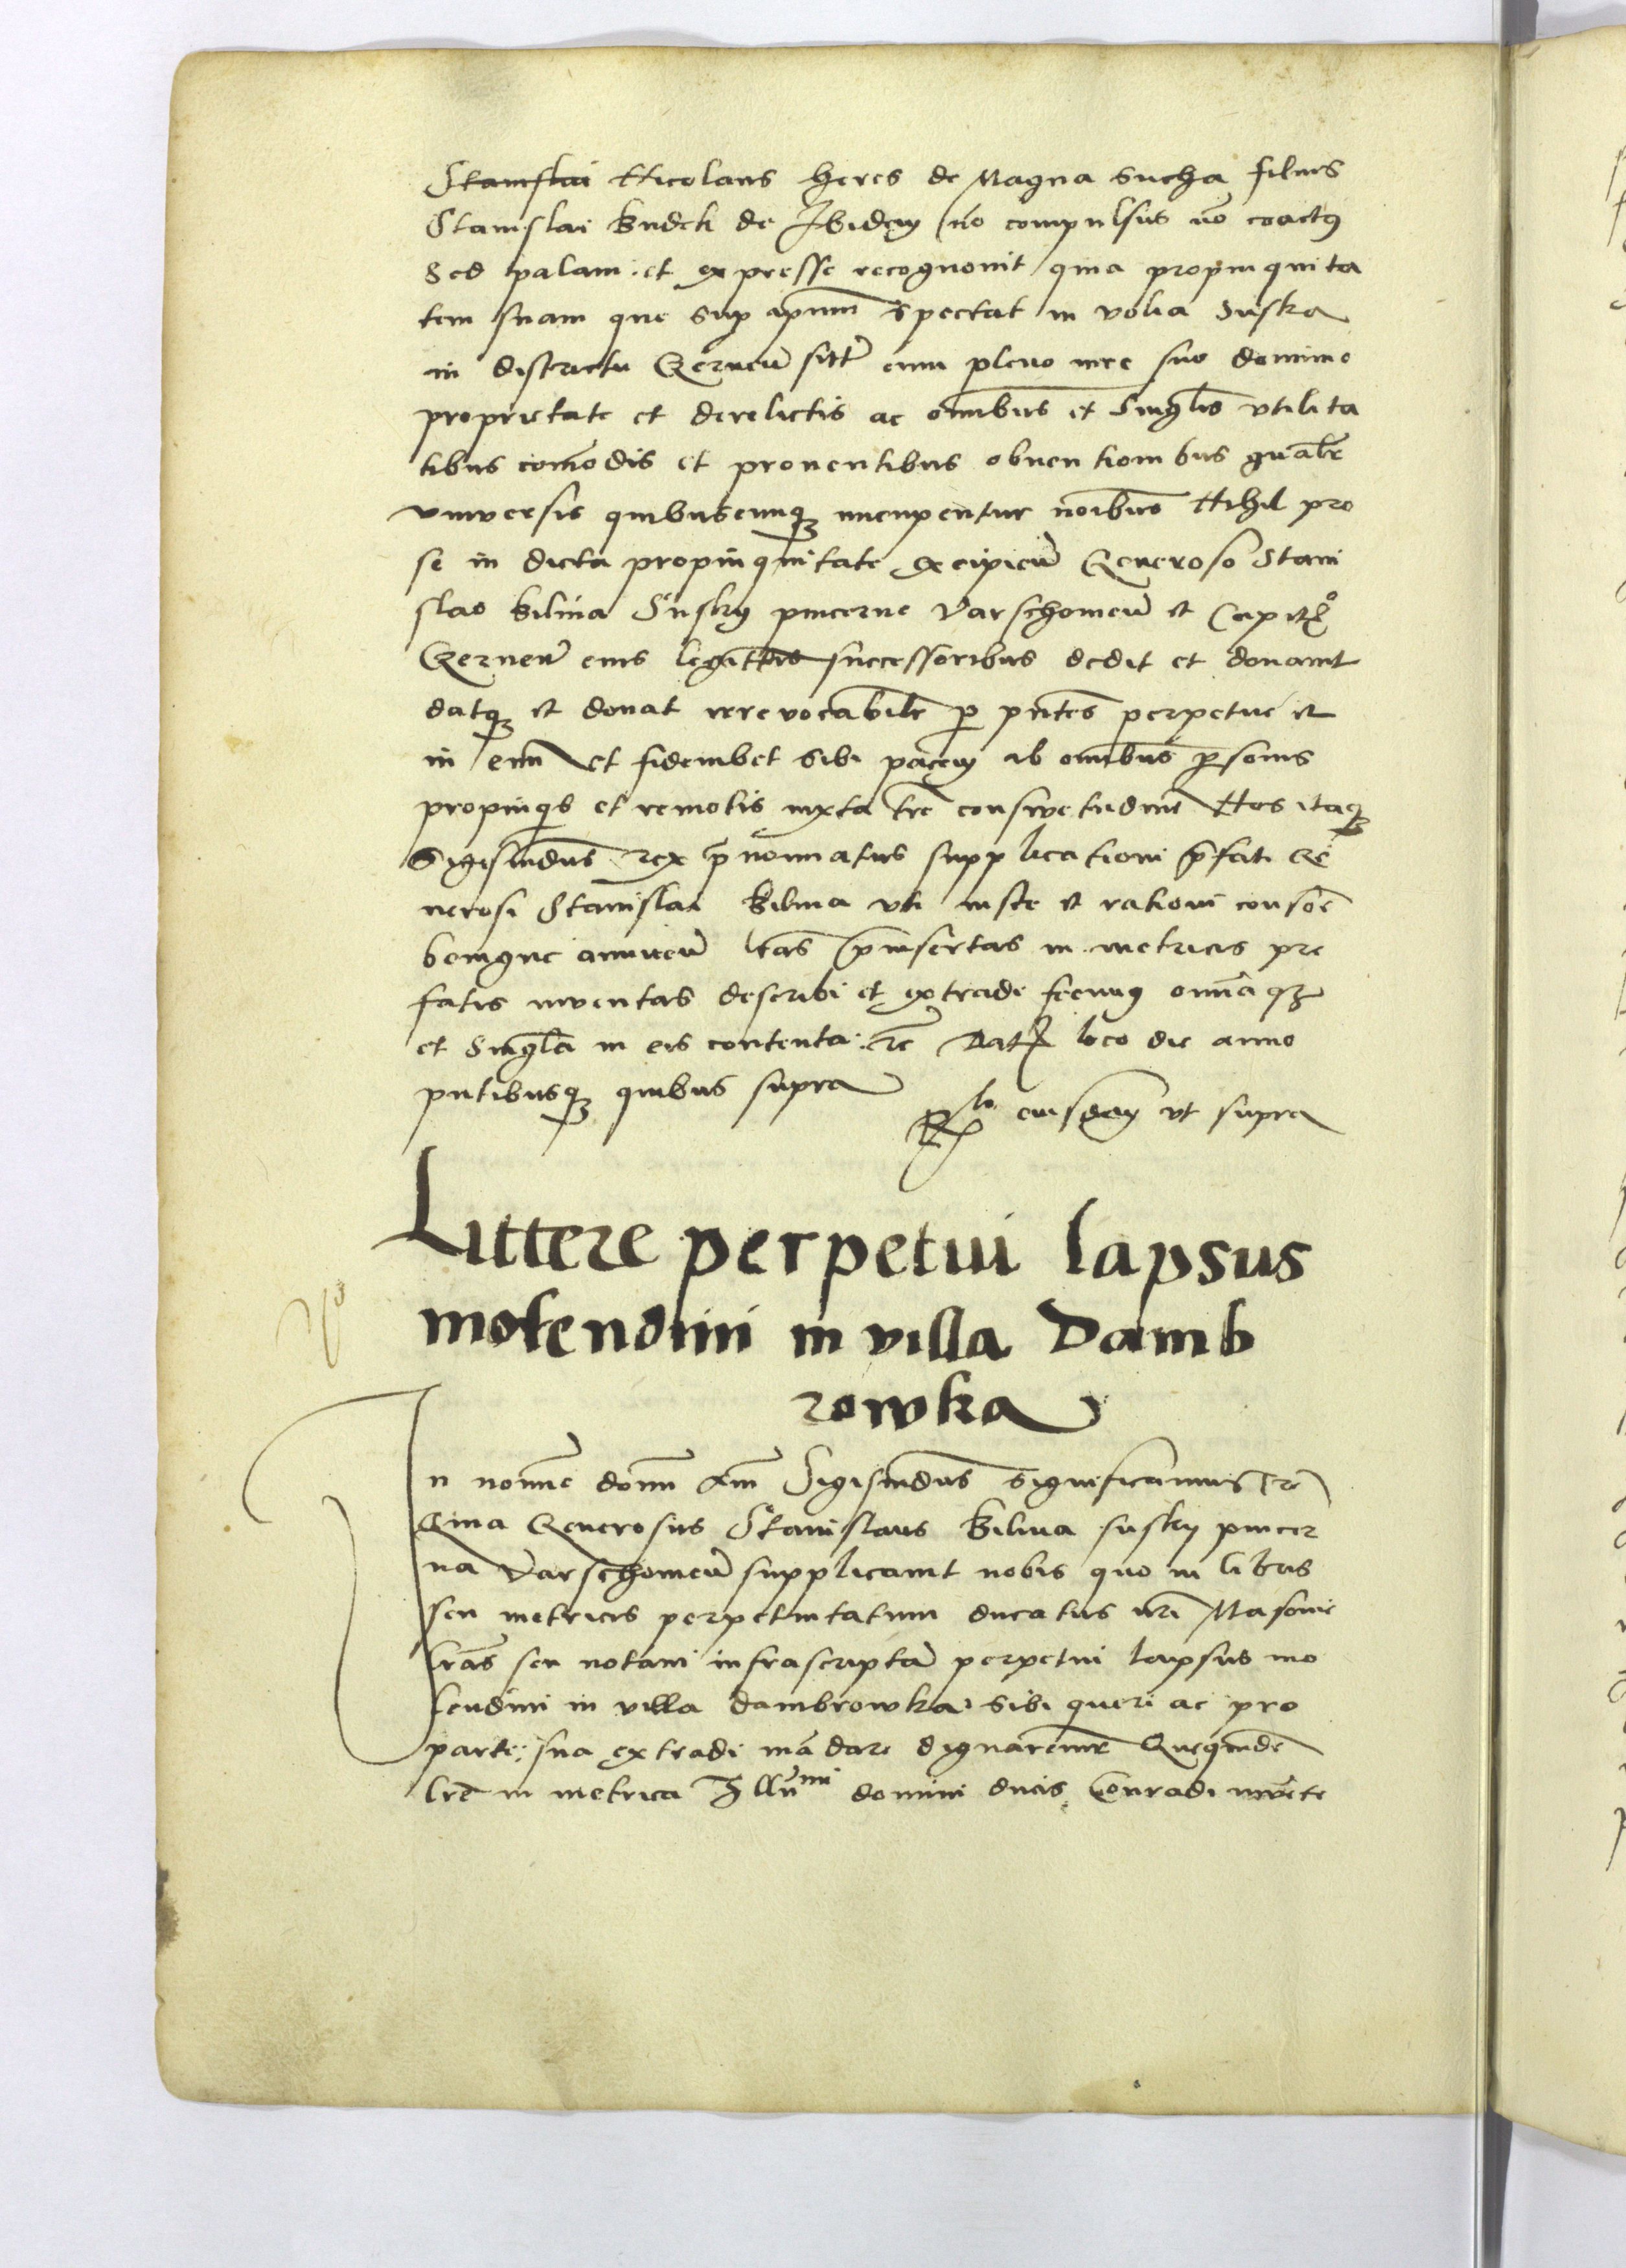 Stanislai Nicolaus heres de Magna Sucha filius
Stanislai Budek de Ibidem no compulsus no coactus
Sed palam et expresse recognovit quia propinquita
tem suam que sup ipsum spectat in volia Suska
in districtu Czernen sitam cum pleno iure suo dominio
proprietate et derelictis ac omibus et Singlis utilita
tibus comodis et proventibus obventionibus gnalr
universis quibuscunq nuncupentur noibus Nihil pro
se in dicta propinquitate excipien Generoso Stani
slao Bilina Susky pincerne Varschovien et Capit
Czernen eius legittis successoribus dedit et donavit
datq et donat irrevocabilr p pntes perpetue et
in evum et fideiubet sibi pacem ab omibus psonis
propinqis et remotis iuxta tre consuetudine Nos itaq
Sigismdus rex pnominatus supplicationi pfati Ge
nerosi Stanislai Bilina uti iuste et rationi consone
benigne annuen lras pinsertas in metricis pre
fatis inventas describi et extradi fecimus omniaq
et Singla in eis contenta rc Dat loco die anno
pntibusq quibus supra
Rlo eiusdem ut supra
Littere perpetui lapsus
molendini in villa Damb
rowka
In nomine domi Am Sigismdus significamus rc
Quia Generosus Stanislaus Bilina susky pincer
na Varschovien supplicavit nobis quo in libris
seu metricis perpetuitatum ducatus nri Masovie
lras seu notam infrascriptam perpetui lapsus mo
lendini in villa dambrowka sibi queri ac pro
parte sua extradi madare dignaremr Quequidem
lre in metrica Illmi domini ducis Conradi invete